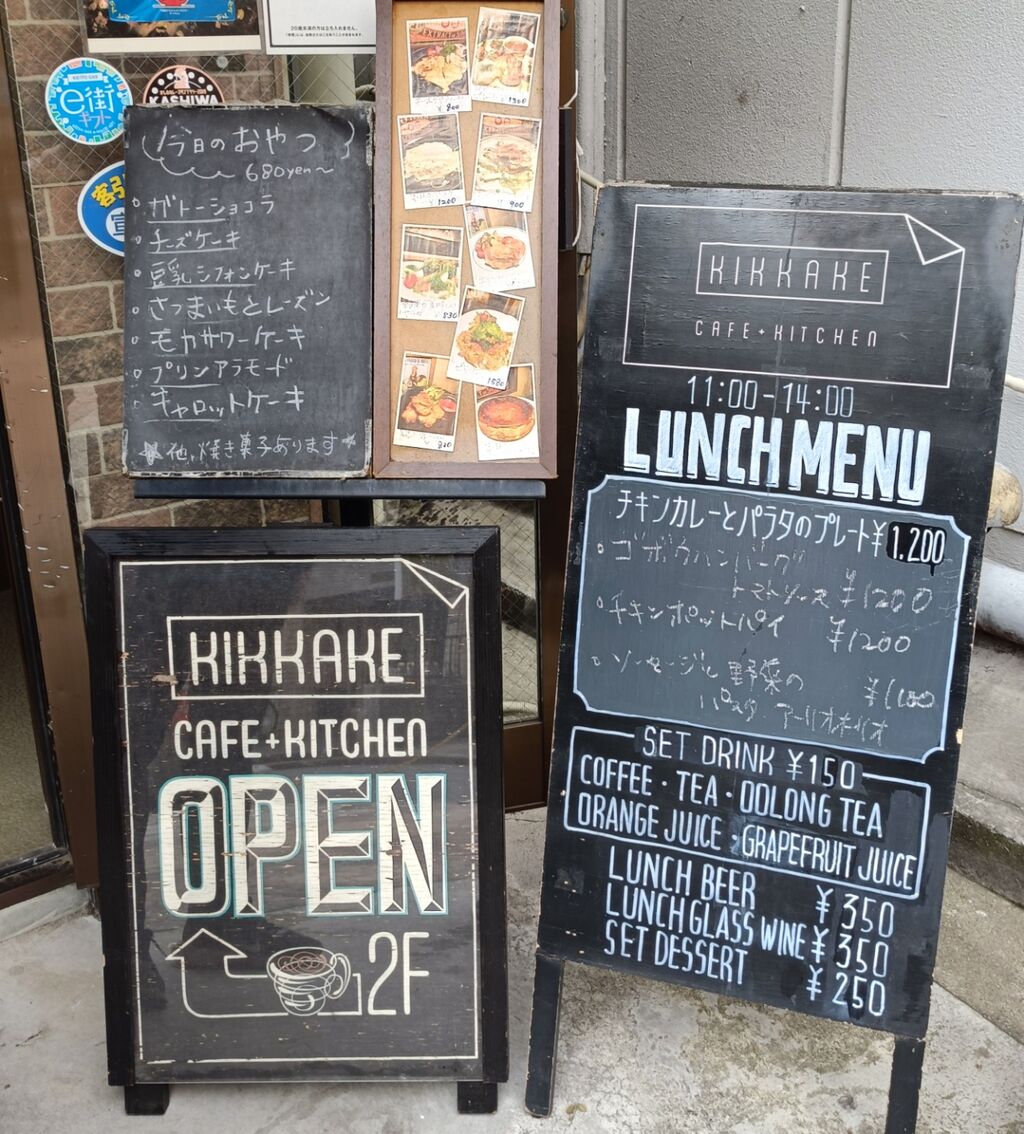 20歳未満の方は立ち入れません。
e街
ギフト
KASHIWA
客引
宣
今日のおやつ
680yen〜
・ガトーショコラ
・チーズケーキ
・豆乳シフォンケーキ
・さつまいもとレーズン
・モカサワーケーキ
・プリンアラモード
・キャロットケーキ
★他、焼き菓子あります★
¥800
1300
1200
900
830
1580
KIKKAKE
CAFE+KITCHEN
OPEN
2F
KIKKAKE
CAFE+KITCHEN
11:00-14:00
LUNCH MENU
チキンカレーとパラタのプレート¥1,200
・ゴボウハンバーグ
トマトソース ¥1200
・チキンポットパイ ¥1200
・ソーセージと野菜の
パスタ アーリオオーリオ
SET DRINK ¥150
COFFEE・TEA・OOLONG TEA
ORANGE JUICE・GRAPEFRUIT JUICE
LUNCH BEER ¥350
LUNCH GLASS WINE ¥350
SET DESSERT ¥250